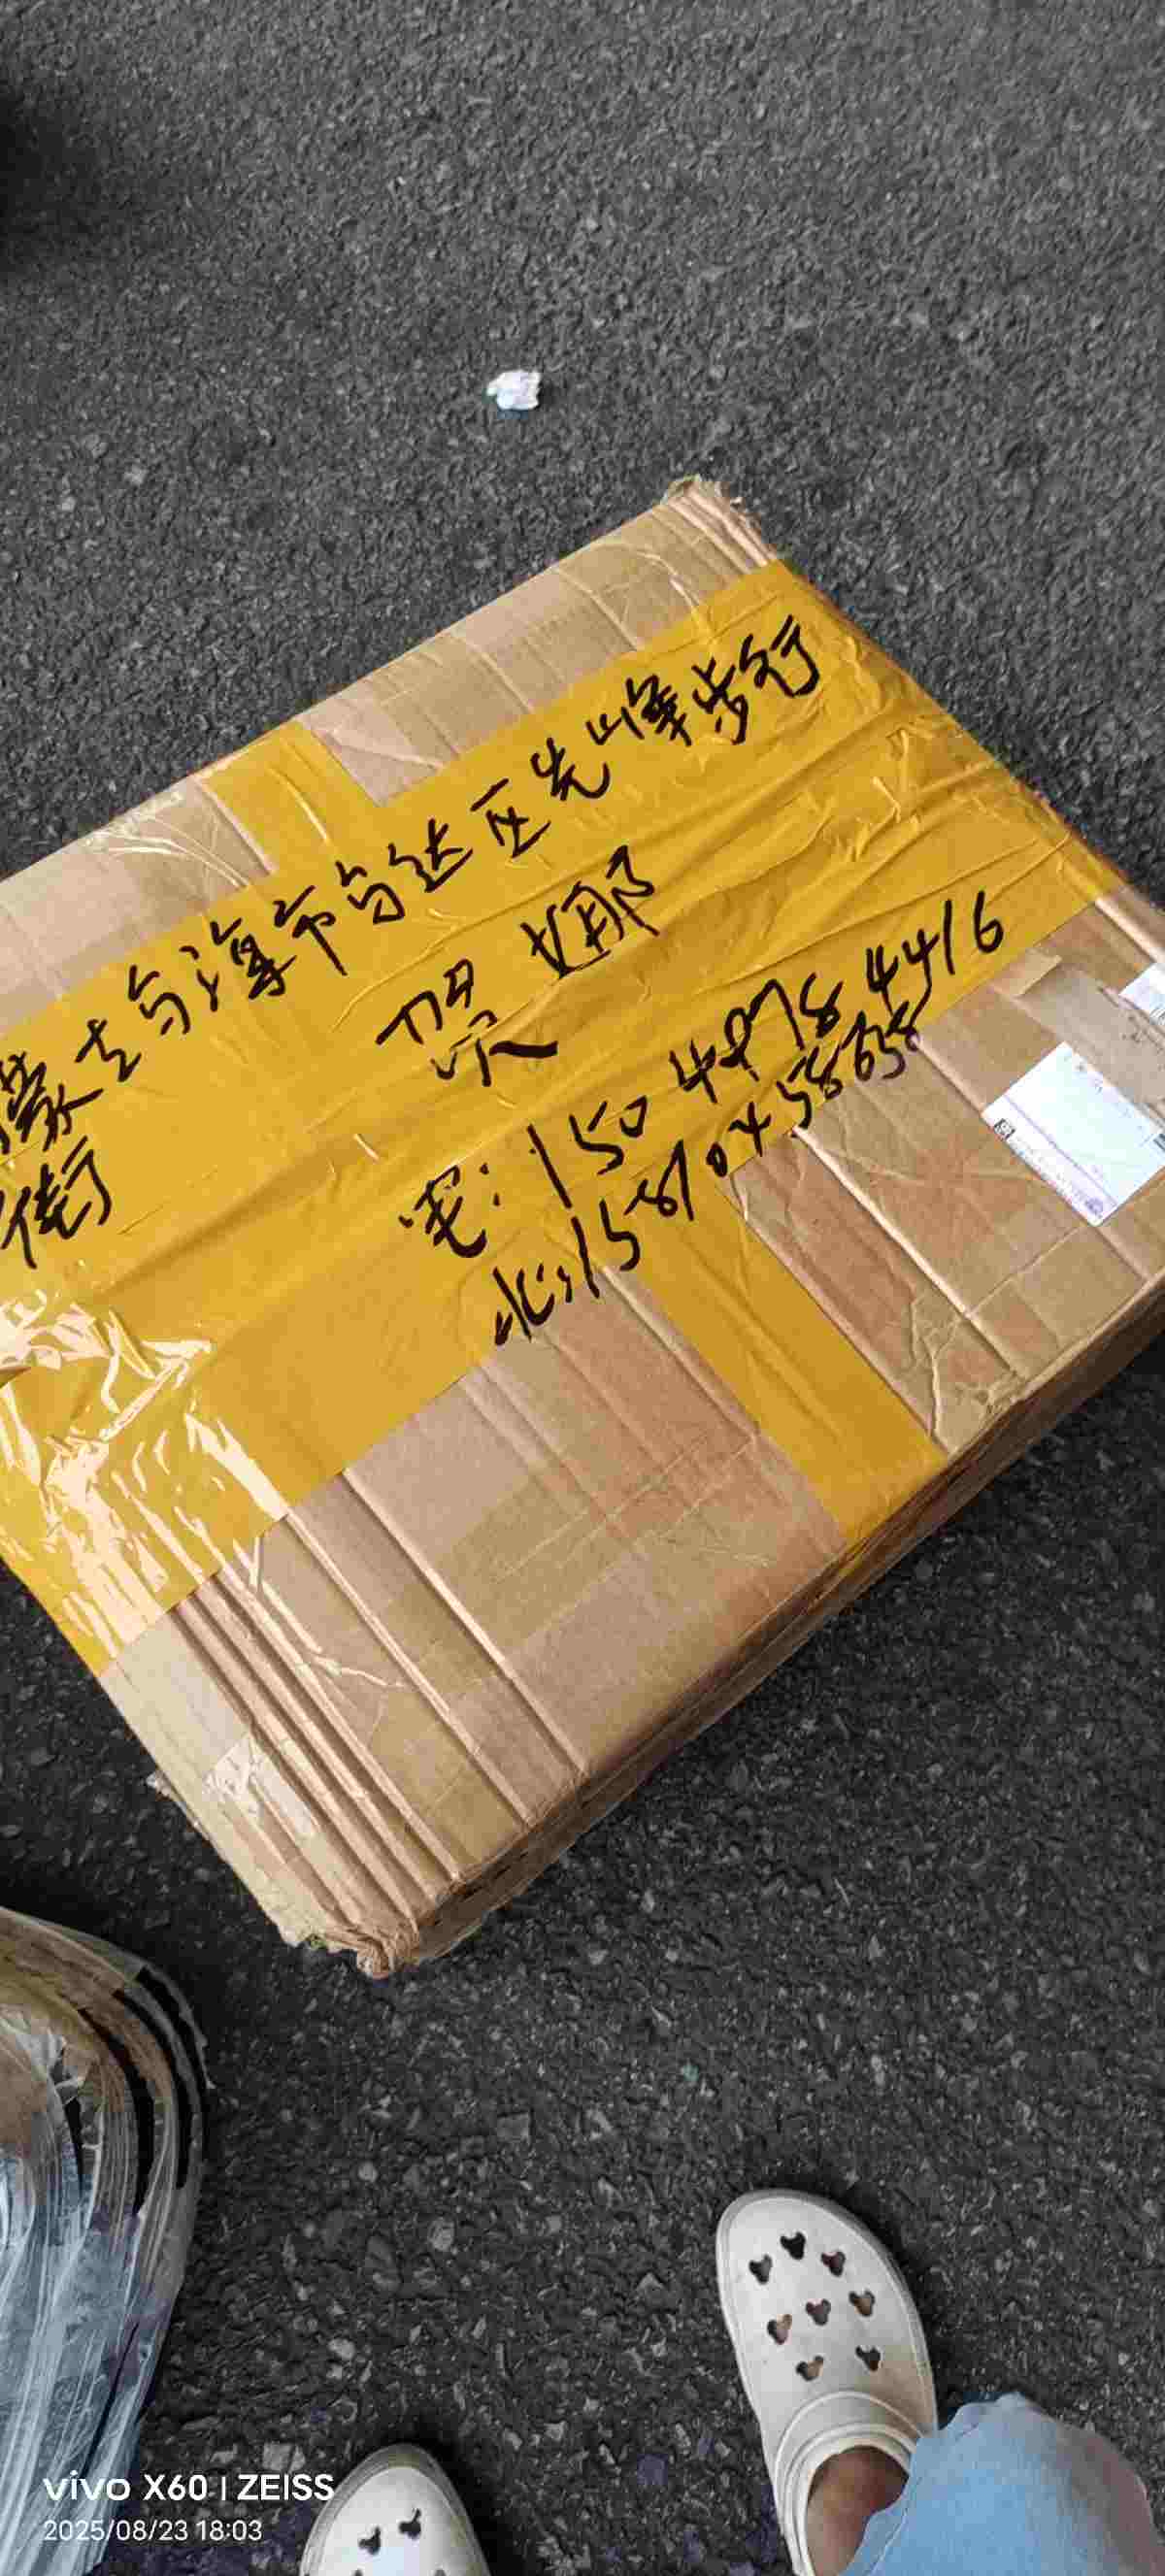 蒙古乌海市乌达区先峰步行
街
梁娜
宅:150 4978 4416
北:15810458658
vivo X60 | ZEISS
2025/08/23 18:03